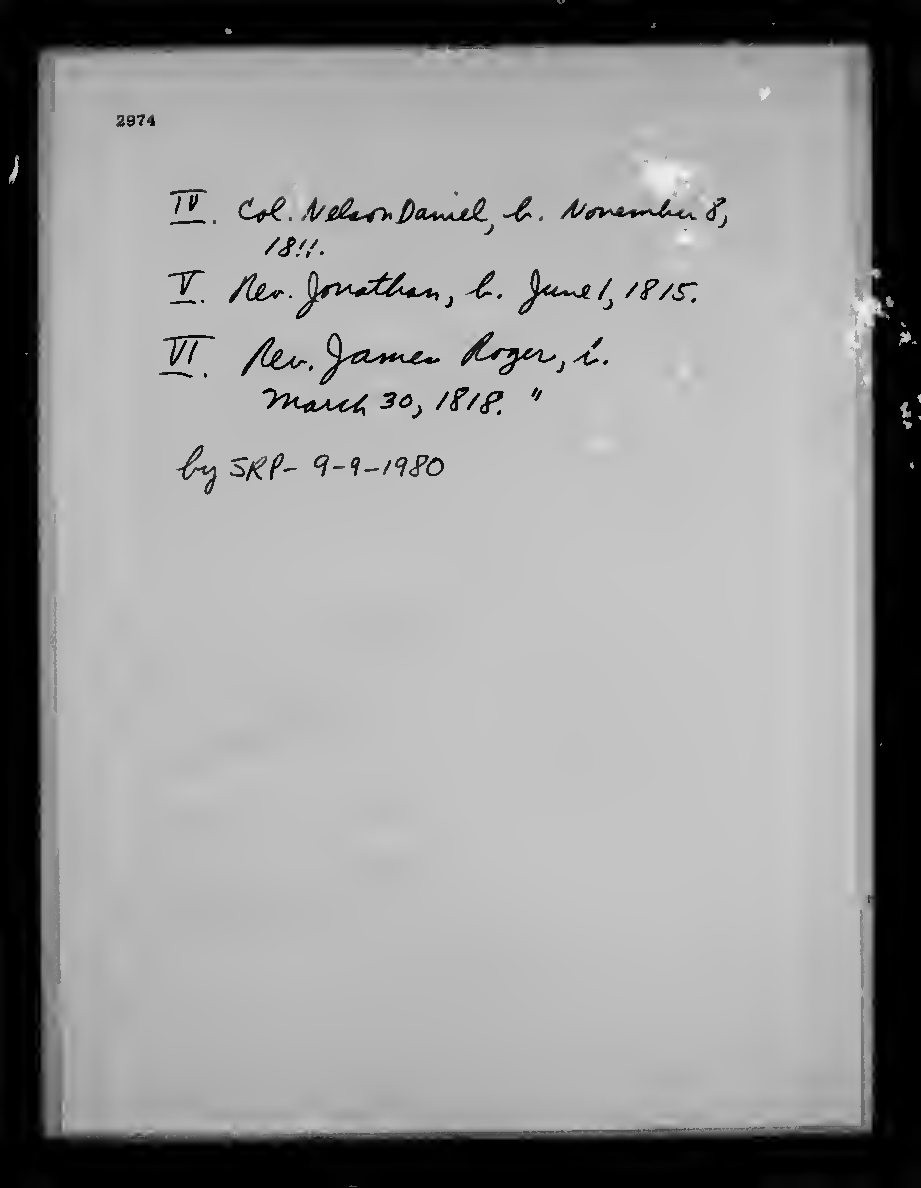 2974
IV. Col. Nelson Daniel, b. November 8,
1811.
V. Rev. Jonathan, b. June 1, 1815.
VI. Rev. James Roger, b.
March 30, 1818."
by SRP- 9-9-1980